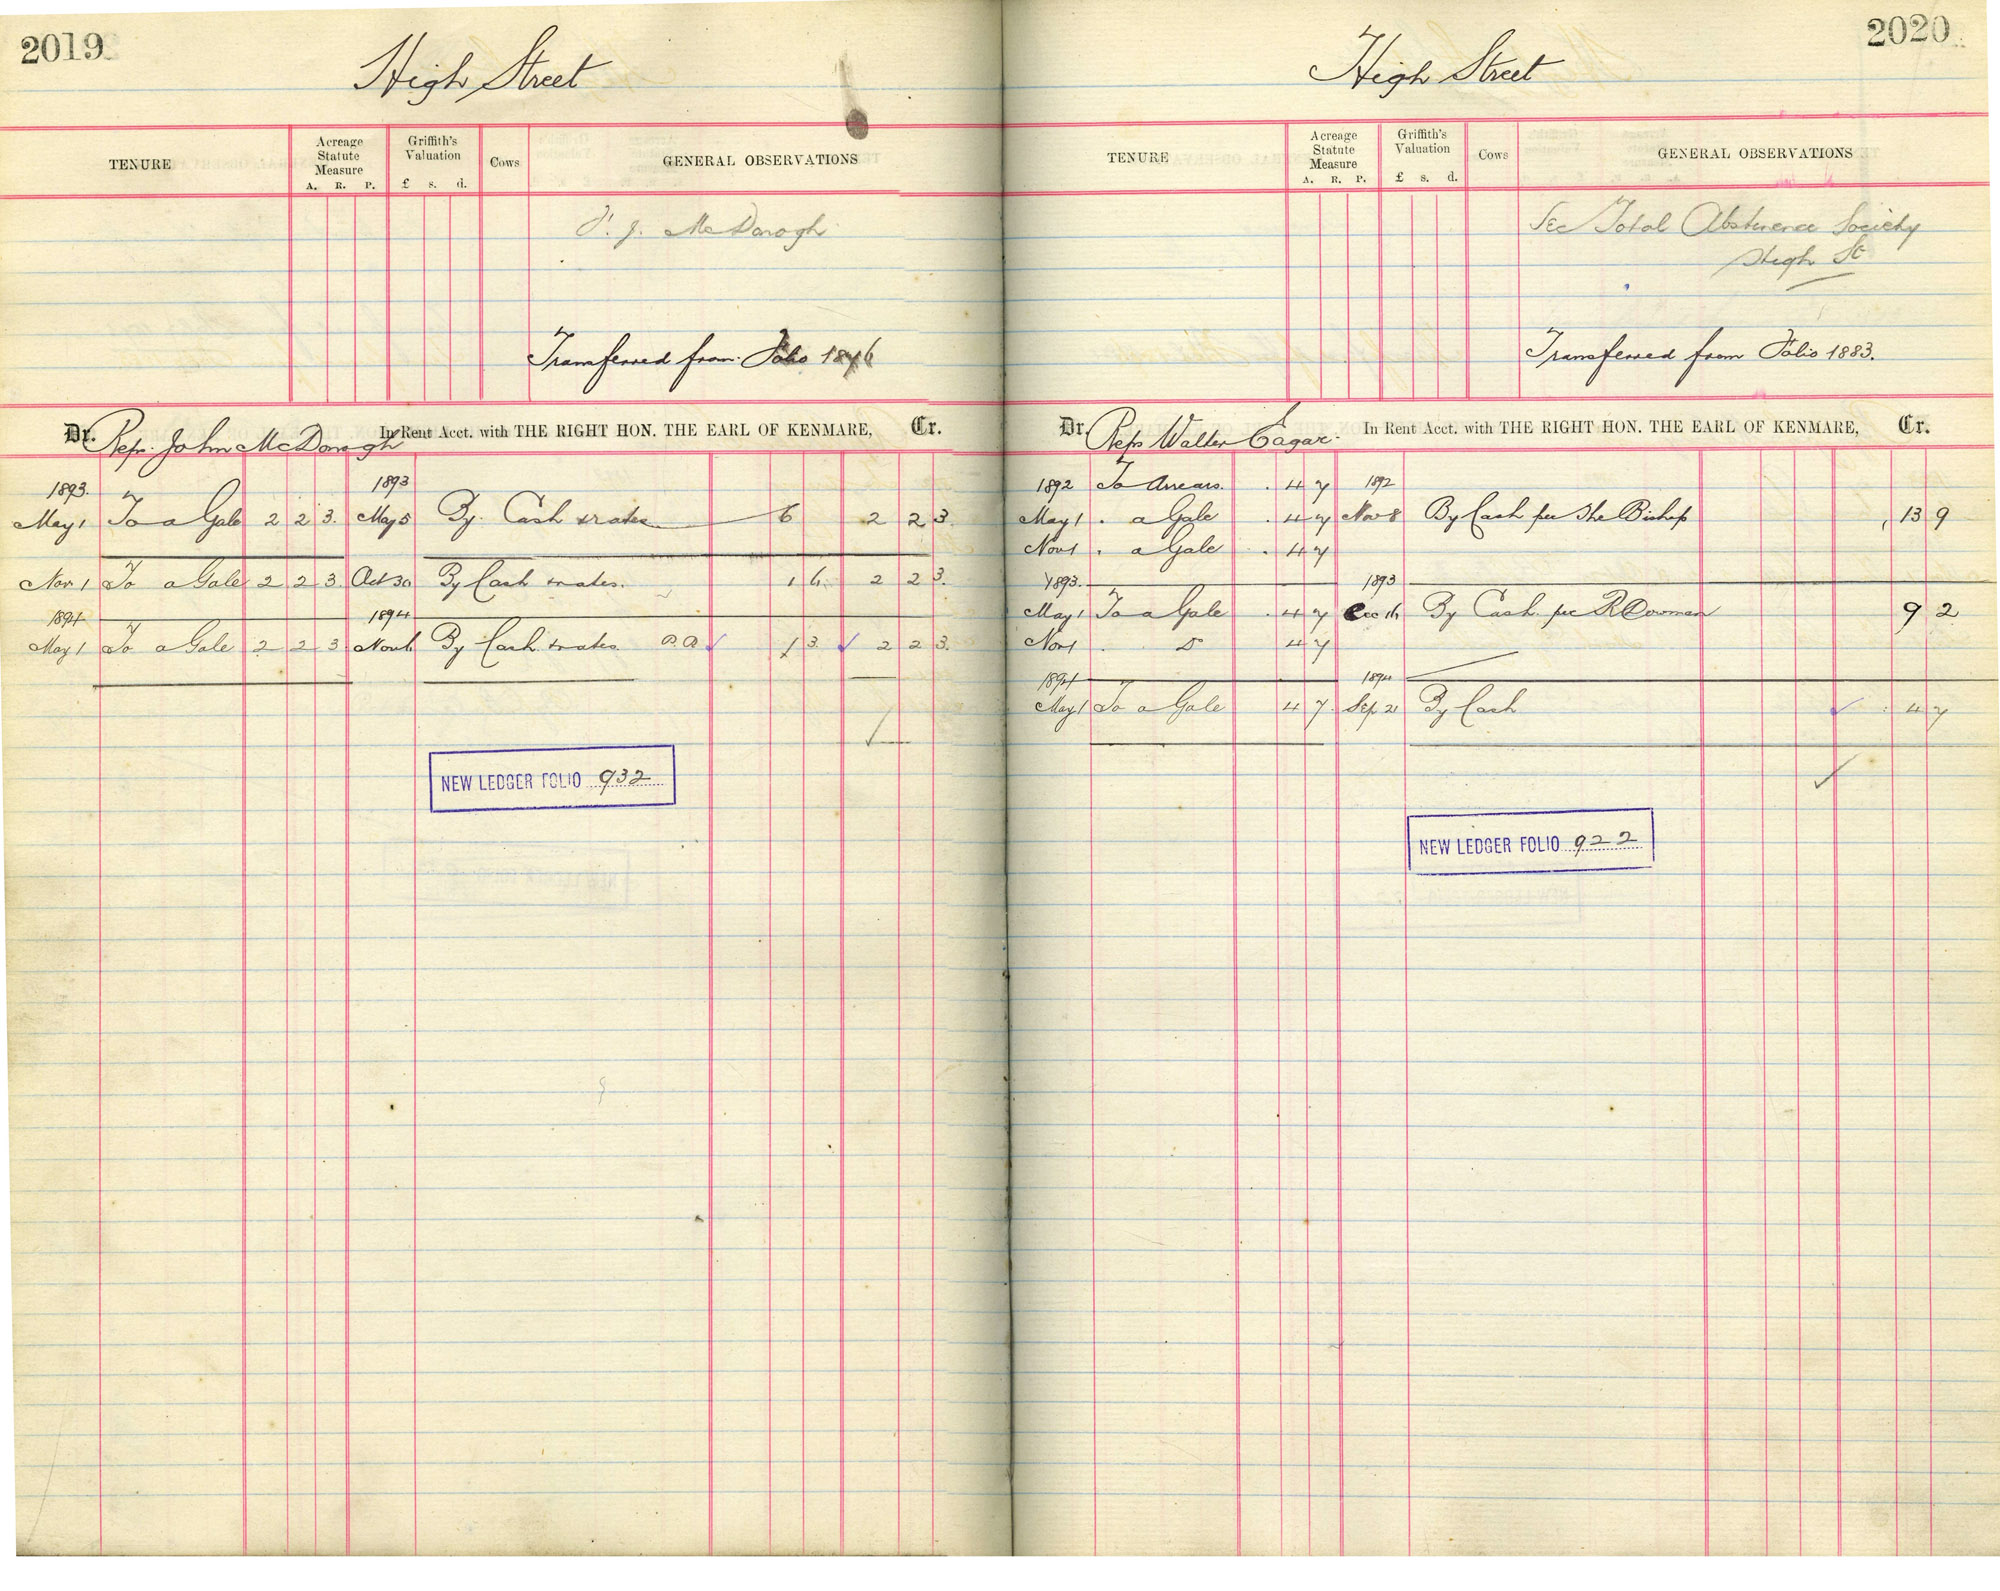 2019
High Street
TENURE Acreage Statute Measure A. R. P. Griffith's Valuation £ s. d. Cows GENERAL OBSERVATIONS
J. McDonogh
Transferred from Folio 1876
Dr. Reps. John McDonogh In Rent Acct. with THE RIGHT HON. THE EARL OF KENMARE, Cr.
1893. 1893
May 1 To a Gale 2 2 3. May 5 By Cash & rates 6 2 2 3
Nov 1 To a Gale 2 2 3. Oct 30 By Cash & rates. 1 6. 2 2 3.
1894 1894
May 1 To a Gale 2 2 3 Nov 6 By Cash & rates. 1 3. 2 2 3.
NEW LEDGER FOLIO 932
2020
High Street
TENURE Acreage Statute Measure A. R. P. Griffith's Valuation £ s. d. Cows GENERAL OBSERVATIONS
See Total Abstinence Society
High St
Transferred from Folio 1883.
Dr. Reps Walter Eagar. In Rent Acct. with THE RIGHT HON. THE EARL OF KENMARE, Cr.
1892 To Arrears. . 4 7 1892
May 1 . a Gale . 4 7 Nov 8 By Cash per The Bishop 13 9
Nov 1 . a Gale . 4 7
1893. 1893
May 1 To a Gale . 4 7 Dec 16 By Cash per R Bowman 9 2
Nov 1 . Do 4 7
1894 1894
May 1 To a Gale 4 7. Sep 21 By Cash 4 7
NEW LEDGER FOLIO 922